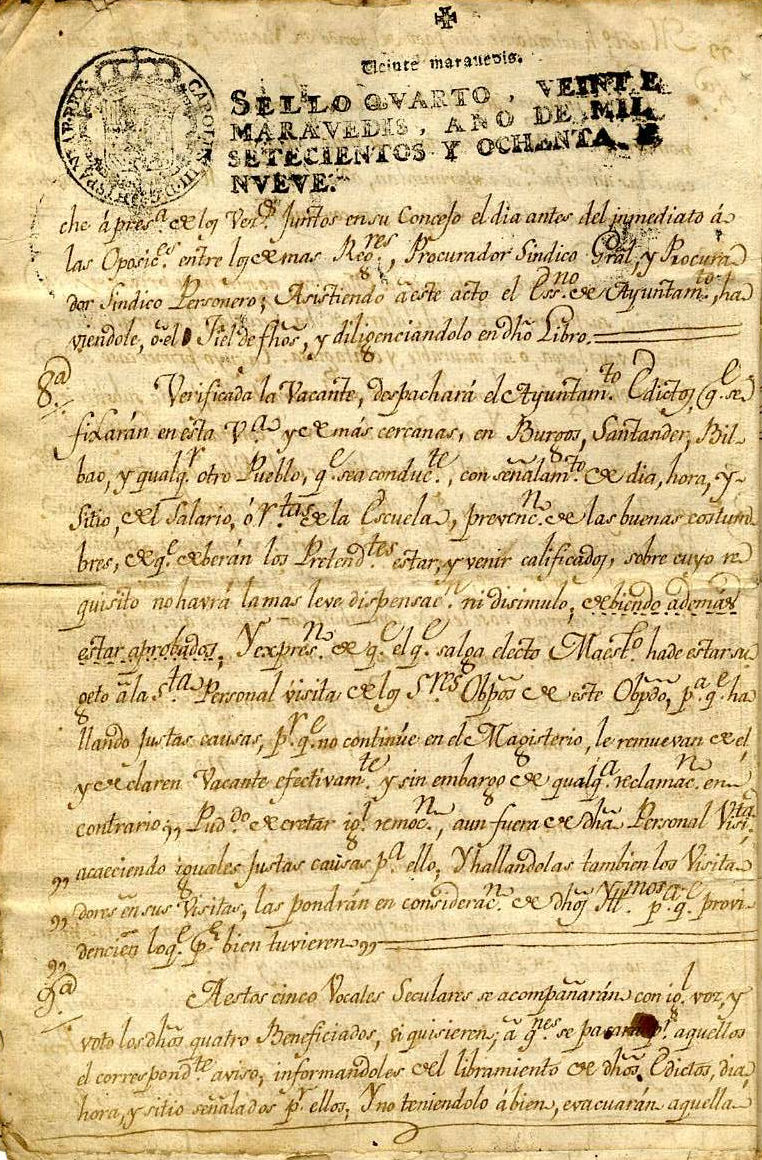 Veinte maravedis.
CAROLUS III D G HISPANIAR REX
SELLO QVARTO, VEINTE
MARAVEDIS, AÑO DE MIL
SETECIENTOS Y OCHENTA Y
NVEVE.
che á pres.ª de los Vez.ˢ Juntos en su Concejo el dia antes del ynmediato á
las Oposic.ᵉˢ entre los demas Reg.ʳᵉˢ, Procurador Sindico Grãl, y Procura
dor Sindico Personero; Asistiendo á este acto el Ess.ⁿᵒ de Ayuntam.ᵗᵒ, ha
viendole, o el Fiel de fhõs, y diligenciandolo en dhõ Libro.
8ª
Verificada la Vacante, despachará el Ayuntam.ᵗᵒ Edictos, q.ᵉ se
fixarán en esta V.ª y demás cercanas, en Burgos, Santander, Bil-
bao, y qualq.ʳ otro Pueblo, q.ᵉ sea conduc.ᵗᵉ, con señalam.ᵗᵒ de dia, hora, y
Sitio, del Salario, ó r.ᵗᵃˢ de la Escuela, prevenc.ⁿ de las buenas costum
bres, de q.ᵉ deberán los Pretend.ᵗᵉˢ estar, y venir calificados, sobre cuyo re
quisito no havrá la mas leve dispensac.ⁿ ni disimulo, debiendo además
estar aprobados, Y expres.ⁿ de q.ᵉ el q.ᵉ salga electo Maest.ᵒ ha de estar su
geto á la S.ᵗᵃ Personal visita de los S.ʳᵉˢ Obpõs de este Obpdo, p.ª q.ᵉ ha
llando Justas causas, p.ʳ q.ᵉ no continúe en el Magisterio, le remuevan de el,
y declaren Vacante efectivam.ᵗᵉ y sin embargo de qualq.ª reclamac.ⁿ en
contrario; „ Pud.ᵈᵒ decretar ig.ˡ remoc.ⁿ, aun fuera de dhã Personal Visi.ᵗᵃ
„ acaeciendo iguales Justas caũsas p.ª ello, Y hallandolas tambien los Visita
„ dores en sus Visitas, las pondrán en considerac.ⁿ de dhõs Yll.ᵐᵒˢ p.ª q.ᵉ provi
„ dencien lo q.ᵉ p.ʳ bien tuvieren „
9ª
A estos cinco Vocales Seculares se acompañarán con ig.ˡ voz, y
voto los dhõs quatro Beneficiados, si quisieren; á q.ⁿᵉˢ se pasará p.ʳ aquellos
el correspond.ᵗᵉ aviso, informandoles del libramiento de dhõs Edictos, dia
hora, y sitio señalados p.ʳ ellos; Y no teniendolo á bien, evacuarán aquella